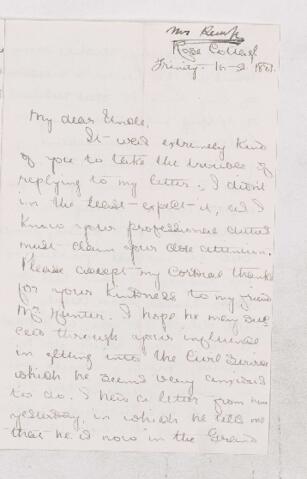 Mrs
Rose Cottage
Trinity
My dear Uncle,
It was extremely kind
of you to take the trouble of
replying to my letter, I didn't
in the least expect it, as I
know your professional duties
must claim your close attention.
Please accept my cordial thanks
for your kindness to my friend
Mr Hunter. I hope he may suc
ceed through your influence
in getting into the Civil Service
which he seems very anxious
to do. I had a letter from him
yesterday, in which he tells me
that he is now in the Grand